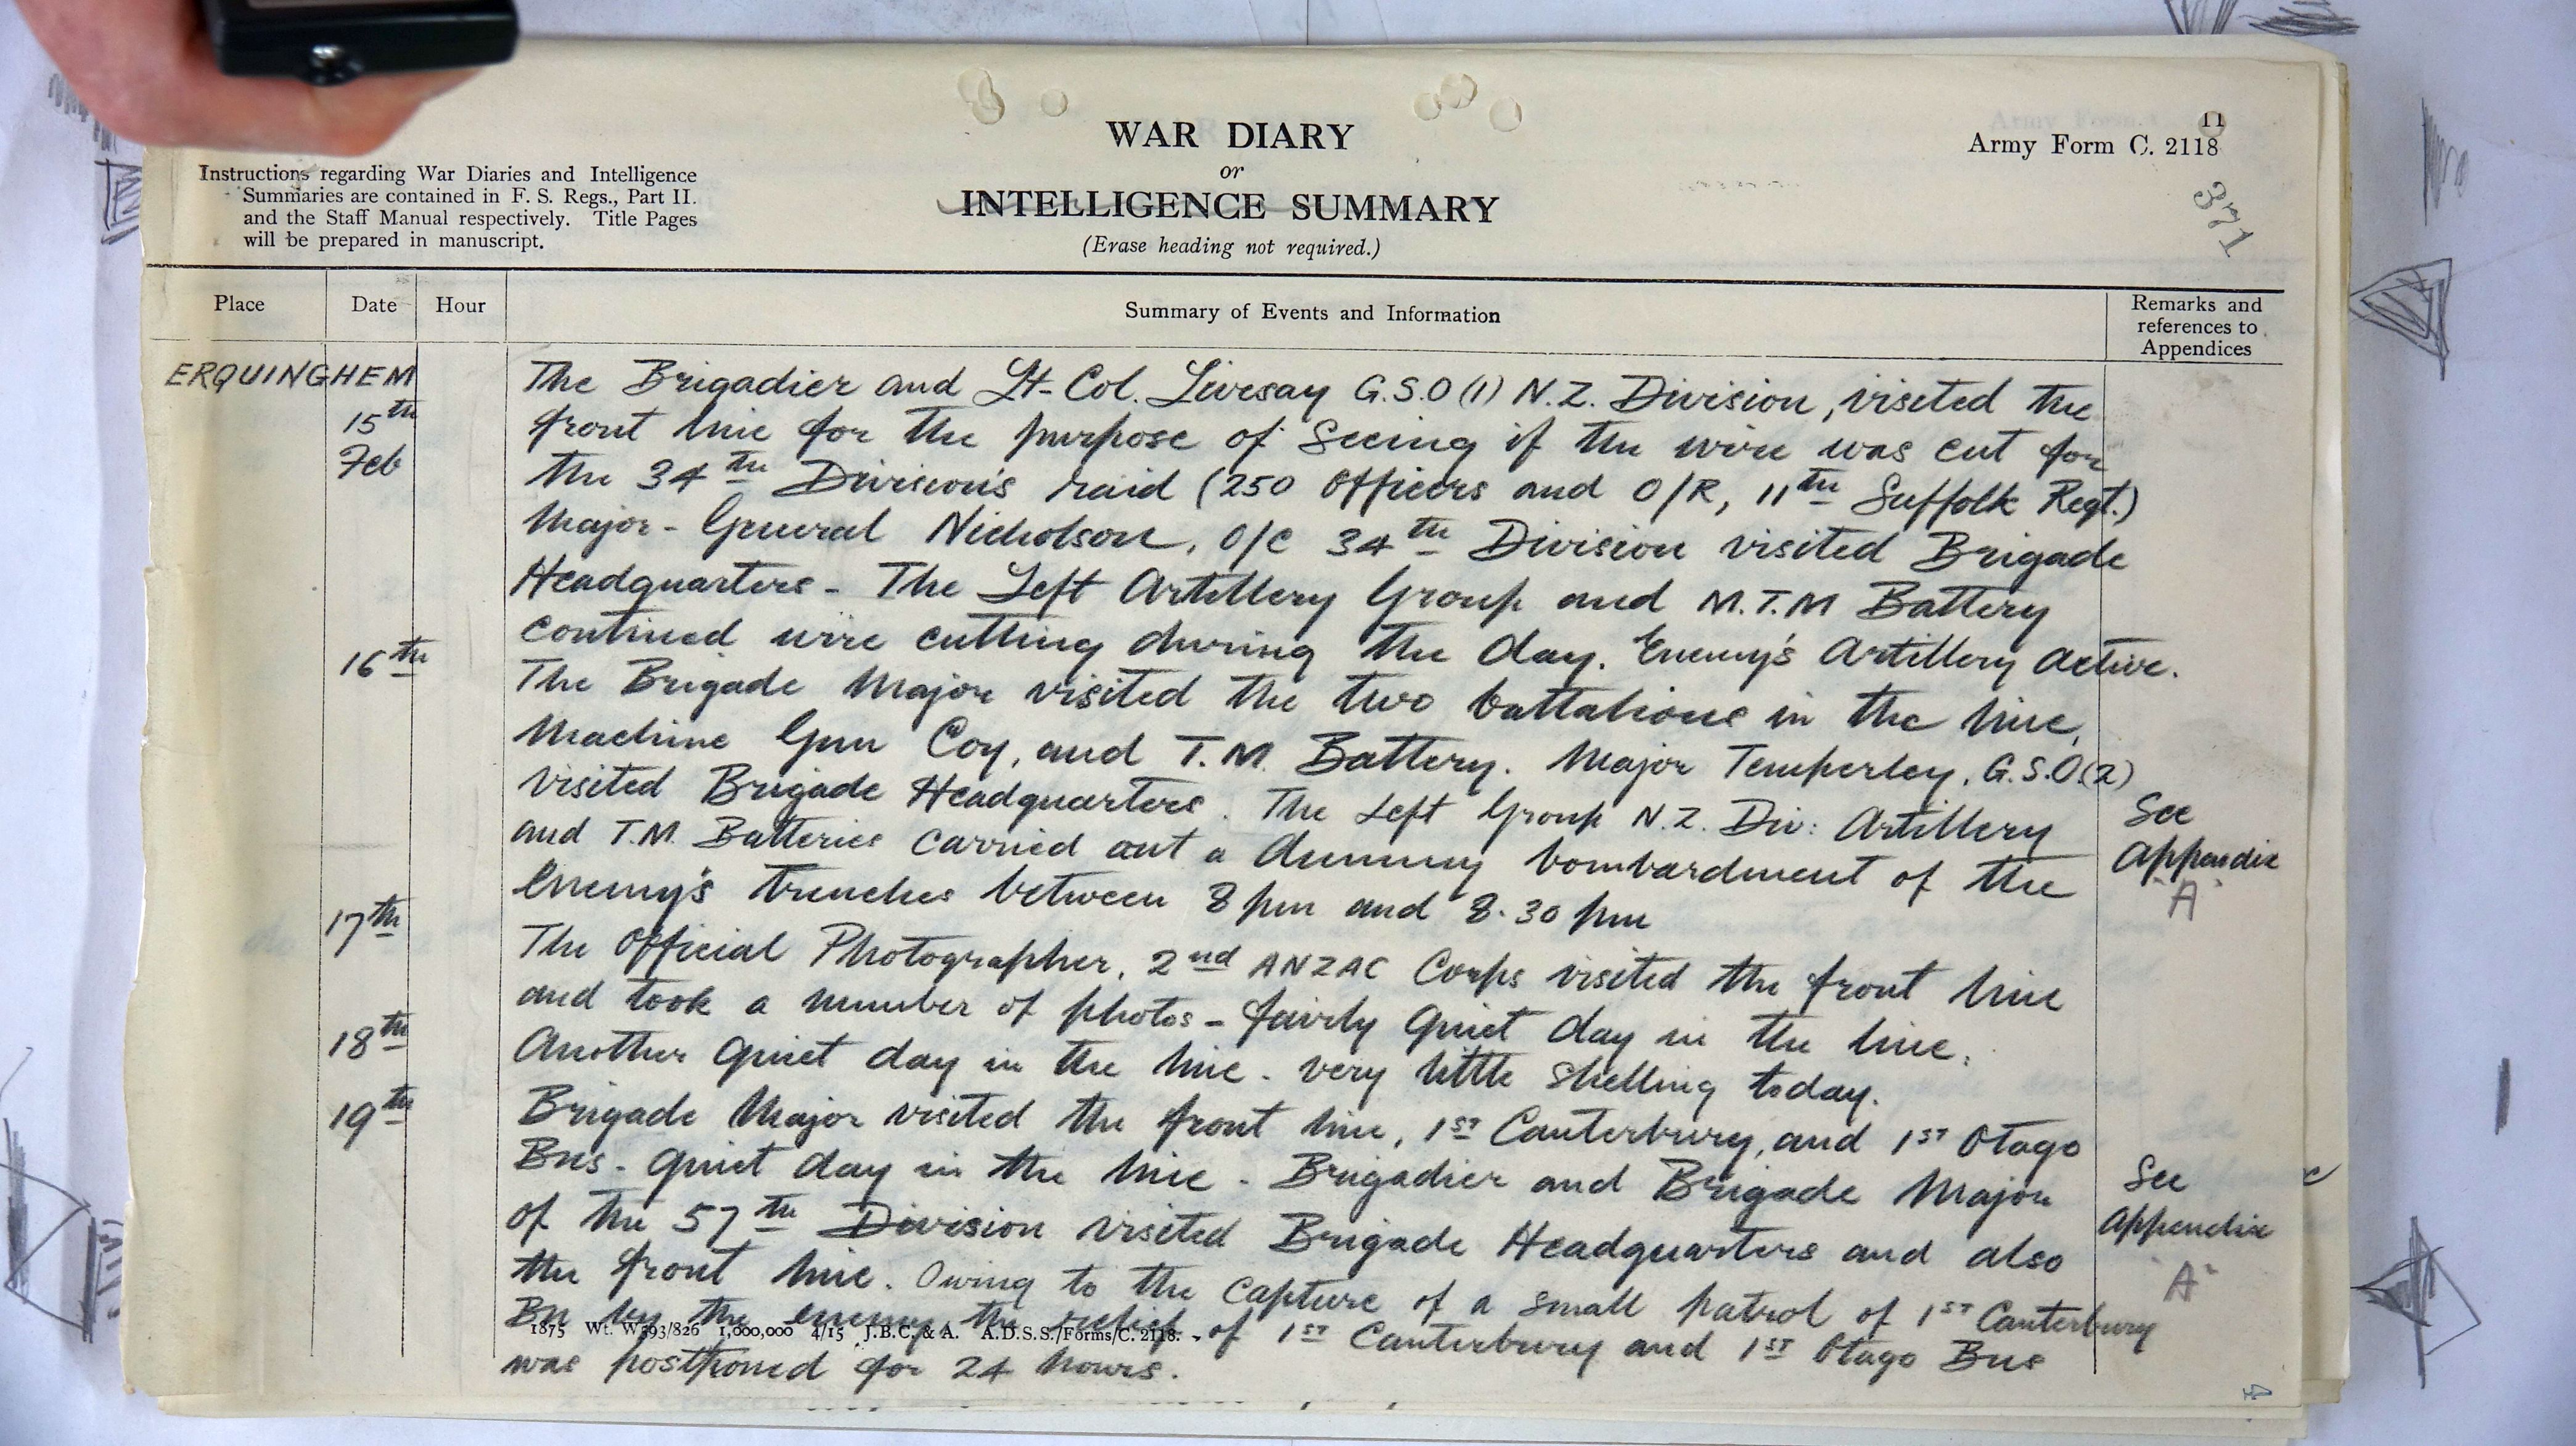 11
Army Form C. 2118
371
WAR DIARY
or
INTELLIGENCE SUMMARY
(Erase heading not required.)
Instructions regarding War Diaries and Intelligence
Summaries are contained in F. S. Regs., Part II.
and the Staff Manual respectively. Title Pages
will be prepared in manuscript.
Place
Date
Hour
Summary of Events and Information
Remarks and
references to
Appendices
ERQUINGHEM
15th
Feb
The Brigadier and Lt-Col. Livesay G.S.O (1) N.Z. Division, visited the
front line for the purpose of seeing if the wire was cut for
the 34th Division's raid (250 Officers and O/R, 11th Suffolk Regt.)
Major-General Nicholson, O/C 34th Division visited Brigade
Headquarters - The Left Artillery Group and M.T.M Battery
continued wire cutting during the day. Enemy's Artillery active.
16th
The Brigade Major visited the two battalions in the line,
Machine Gun Coy, and T.M. Battery. Major Temperley, G.S.O.(2)
visited Brigade Headquarters. The Left Group N.Z. Div: Artillery
and T.M. Batteries carried out a dummy bombardment of the
Enemy's trenches between 8 pm and 8.30 pm
See
Appendix
"A"
17th
The Official Photographer, 2nd ANZAC Corps visited the front line
and took a number of photos - fairly quiet day in the line.
18th
Another quiet day in the line - very little shelling today.
19th
Brigade Major visited the front line, 1st Canterbury, and 1st Otago
Bns - quiet day in the line - Brigadier and Brigade Major
of the 57th Division visited Brigade Headquarters and also
the front line. Owing to the capture of a small patrol of 1st Canterbury
Bn by the enemy the relief of 1st Canterbury and 1st Otago Bns
was postponed for 24 hours.
See
Appendix
"A"
1875 Wt. W593/826 1,000,000 4/15 J.B.C. & A. A.D.S.S./Forms/C. 2118.
4